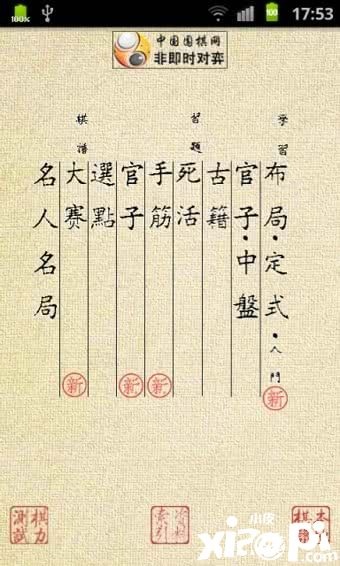 100%
100
17:53
中国围棋网
非即时对弈
学習
布局·定式·入門 新
官子·中盤
古籍
習題
死活
手筋 新
官子 新
選點
棋譜
大赛 新
名人名局
索引
棋力測試
小皮
xiaopi